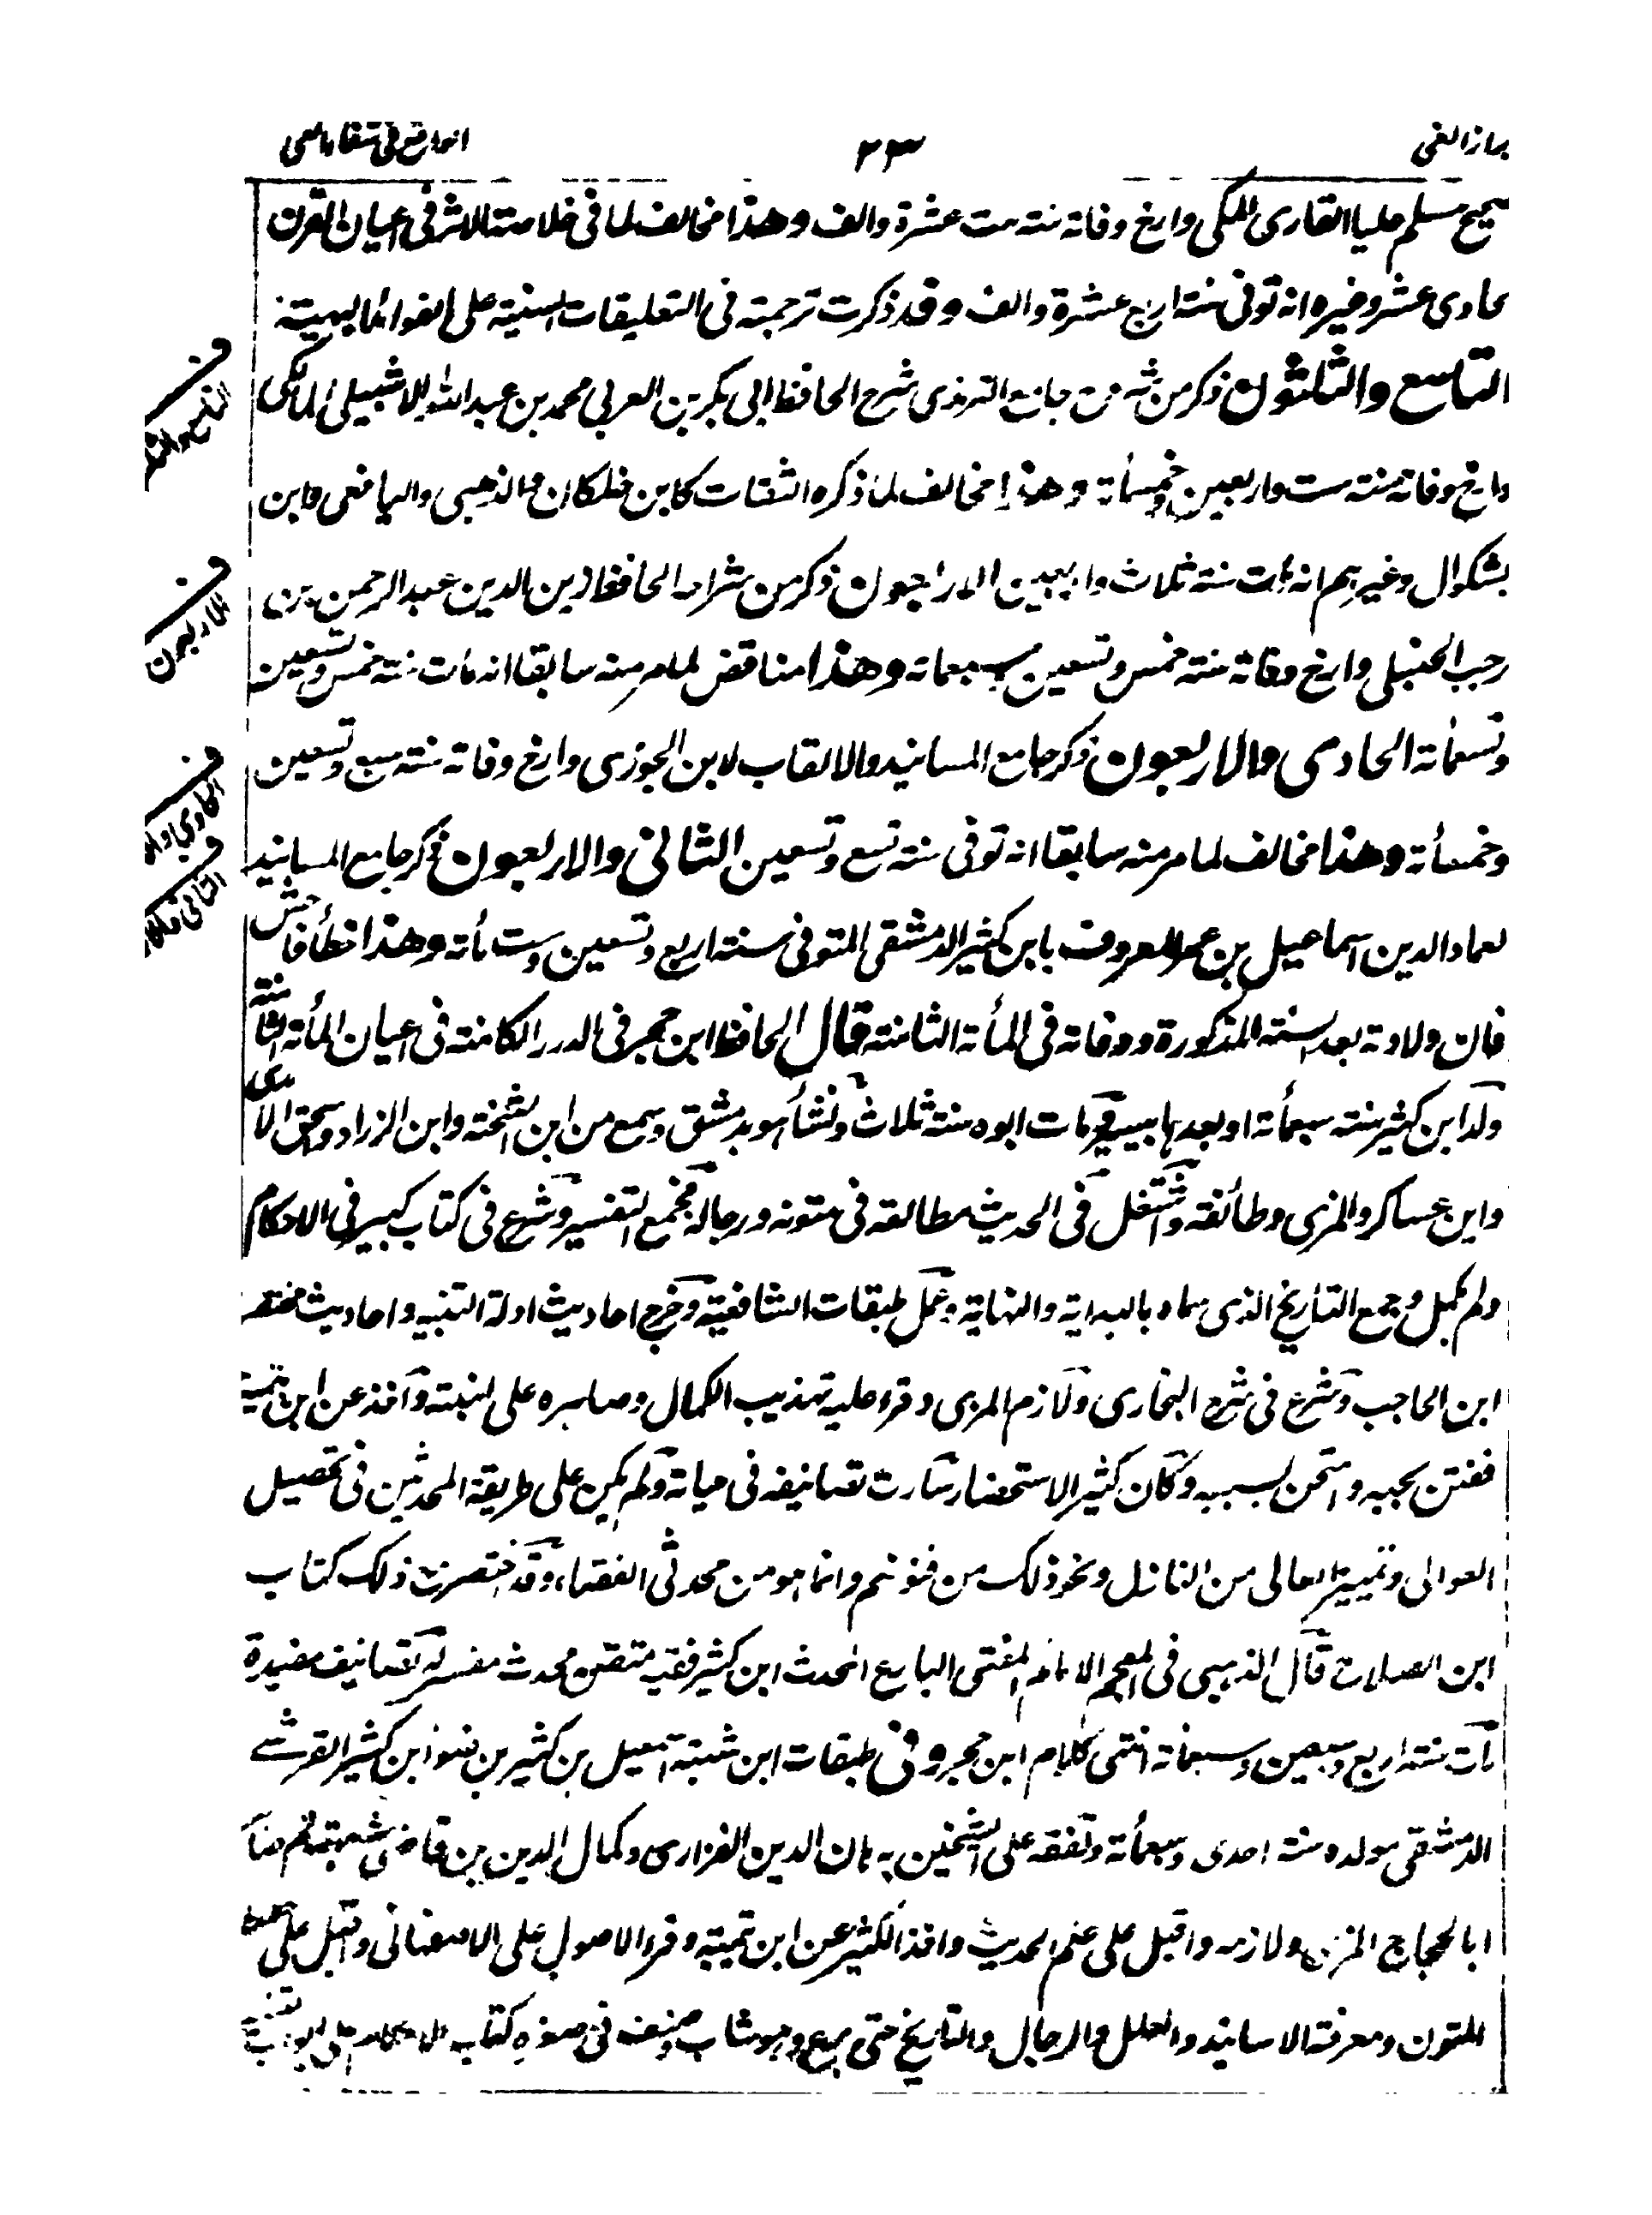 ابراز الغي
٣٣
الواقع في شفاء العي
صحيح مسلم عليا القاري المكي وارخ وفاته سنته ست عشرة والف وهذا مخالف لما في خلاصة الاثر في اعيان القرن
الحادي عشر وغيره انه توفي سنته اربع عشرة والف وقد ذكرت ترجمته في التعليقات السنية على الفوائد البهية
التاسع والثلثون ذكر من شروح جامع الترمذي شرح الحافظ ابي بكر بن العربي محمد بن عبد الله الاشبيلي المالكي
وارخ وفاته سنته ست واربعين وخمسمأة وهذا مخالف لما ذكره الثقات كابن خلكان والذهبي واليافعي وابن
بشكوال وغيرهم انه مات سنته ثلاث واربعين الاربعون ذكر من شراحه الحافظ زين الدين عبد الرحمن بن
رجب الحنبلي وارخ وفاته سنته خمس وتسعين وسبعمأة وهذا مناقض لما مر منه سابقا انه مات سنته خمس وتسعين
وتسعمأة الحادي والاربعون ذكر جامع المسانيد والالقاب لابن الجوزي وارخ وفاته سنته سبع وتسعين
وخمسمأة وهذا مخالف لما مر منه سابقا انه توفي سنته تسع وتسعين الثاني والاربعون ذكر جامع المسانيد
لعماد الدين اسماعيل بن عمر المعروف بابن كثير الدمشقي المتوفي سنته اربع وتسعين وست مأة وهذا خطأ فاحش
فان ولادته بعد السنته المذكورة ووفاته في المأة الثامنته قال الحافظ ابن حجر في الدرر الكامنته في اعيان المأة الثامنته
ولد ابن كثير سنته سبعمأة او بعدها بيسير ومات ابوه سنته ثلاث ونشأ هو بدمشق وسمع من ابن الشحنته وابن الزراد واسحق الآمدي
وابن عساكر والمزي وطائفته واشتغل في الحديث مطالعته في متونه ورجاله فجمع التفسير وشرع في كتاب كبير في الاحكام
ولم يكمل وجمع التأريخ الذي سماه بالبداية والنهاية وعمل طبقات الشافعية وخرج احاديث ادلة التنبيه واحاديث مختصر
ابن الحاجب وشرع في شرح البخاري ولازم المزي وقرء عليه تهذيب الكمال وصاهره على ابنته واخذ عن ابن تيمية
ففتن بحبه وامتحن بسببه وكان كثير الاستحضار سارت تصانيفه في حياته ولم يكن على طريقة المحدثين في تحصيل
العوالي وتمييز العالي من النازل ونحو ذلك من فنونهم وانما هو من محدثي الفقهاء وقد اختصرت ذلك كتاب
ابن الصلاح قال الذهبي في المعجم الامام المفتي البارع المحدث ابن كثير فقيه متقن محدث مفسر له تصانيف مفيدة
مات سنته اربع وسبعين وسبعمأة انتهى كلام ابن حجر وفي طبقات ابن شهبة اسمعيل بن كثير بن ضوء ابن كثير القرشي
الدمشقي مولده سنته احدى وسبعمأة وتفقه على الشيخين برهان الدين الفزاري وكمال الدين بن قاضي شهبة ثم صاهر
ابا الحجاج المزي ولازمه واقبل على علم الحديث واخذ الكثير عن ابن تيمية وقرء الاصول على الاصفهاني واقبل على حفظ
المتون ومعرفة الاسانيد والعلل والرجال والتأريخ حتى برع وهو شاب وصنف في صغره كتاب الاحكام على ابواب التنبيه
التاسع والثلثون
الاربعون
الحادي والار
الثاني والار